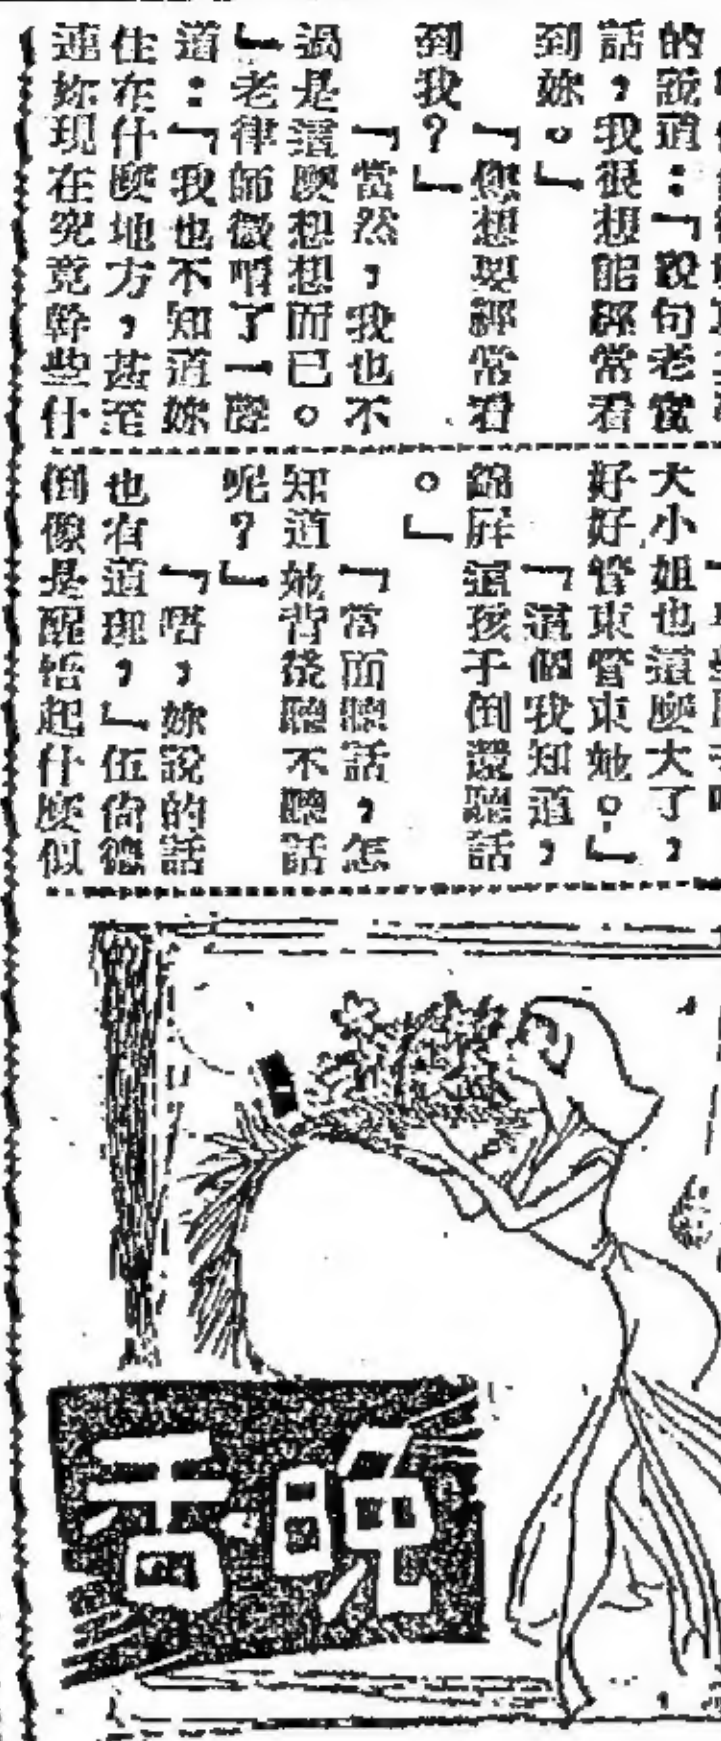 的說道：「說句老實
話，我很想能經常看
到妳。」
「您想要經常看
到我？」
「當然，我也不
過是這麼想想而已。
」老律師微喟了一聲
道：「我也不知道妳
住在什麼地方，甚至
連妳現在究竟幹些什
大小姐也這麼大了，
好好管束管束她。」
「這個我知道，
錦屏這孩子倒還聽話
。」
「當面聽話，怎
知道她背後聽不聽話
呢？」
「唔，妳說的話
也有道理，」伍倚德
倒像是醒悟起什麼似
晚香